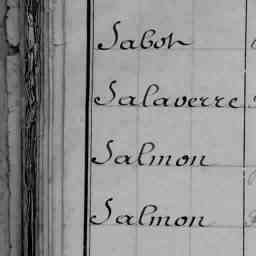 Sabot
Salaverre
Salmon
Salmon